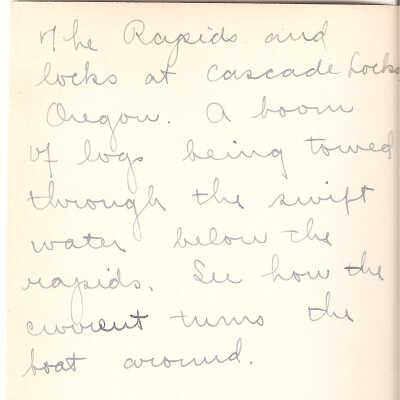 The Rapids and
locks at Cascade Locks
Oregon. A boom
of logs being towed
through the swift
water below the
rapids. See how the
current turns the
boat around.